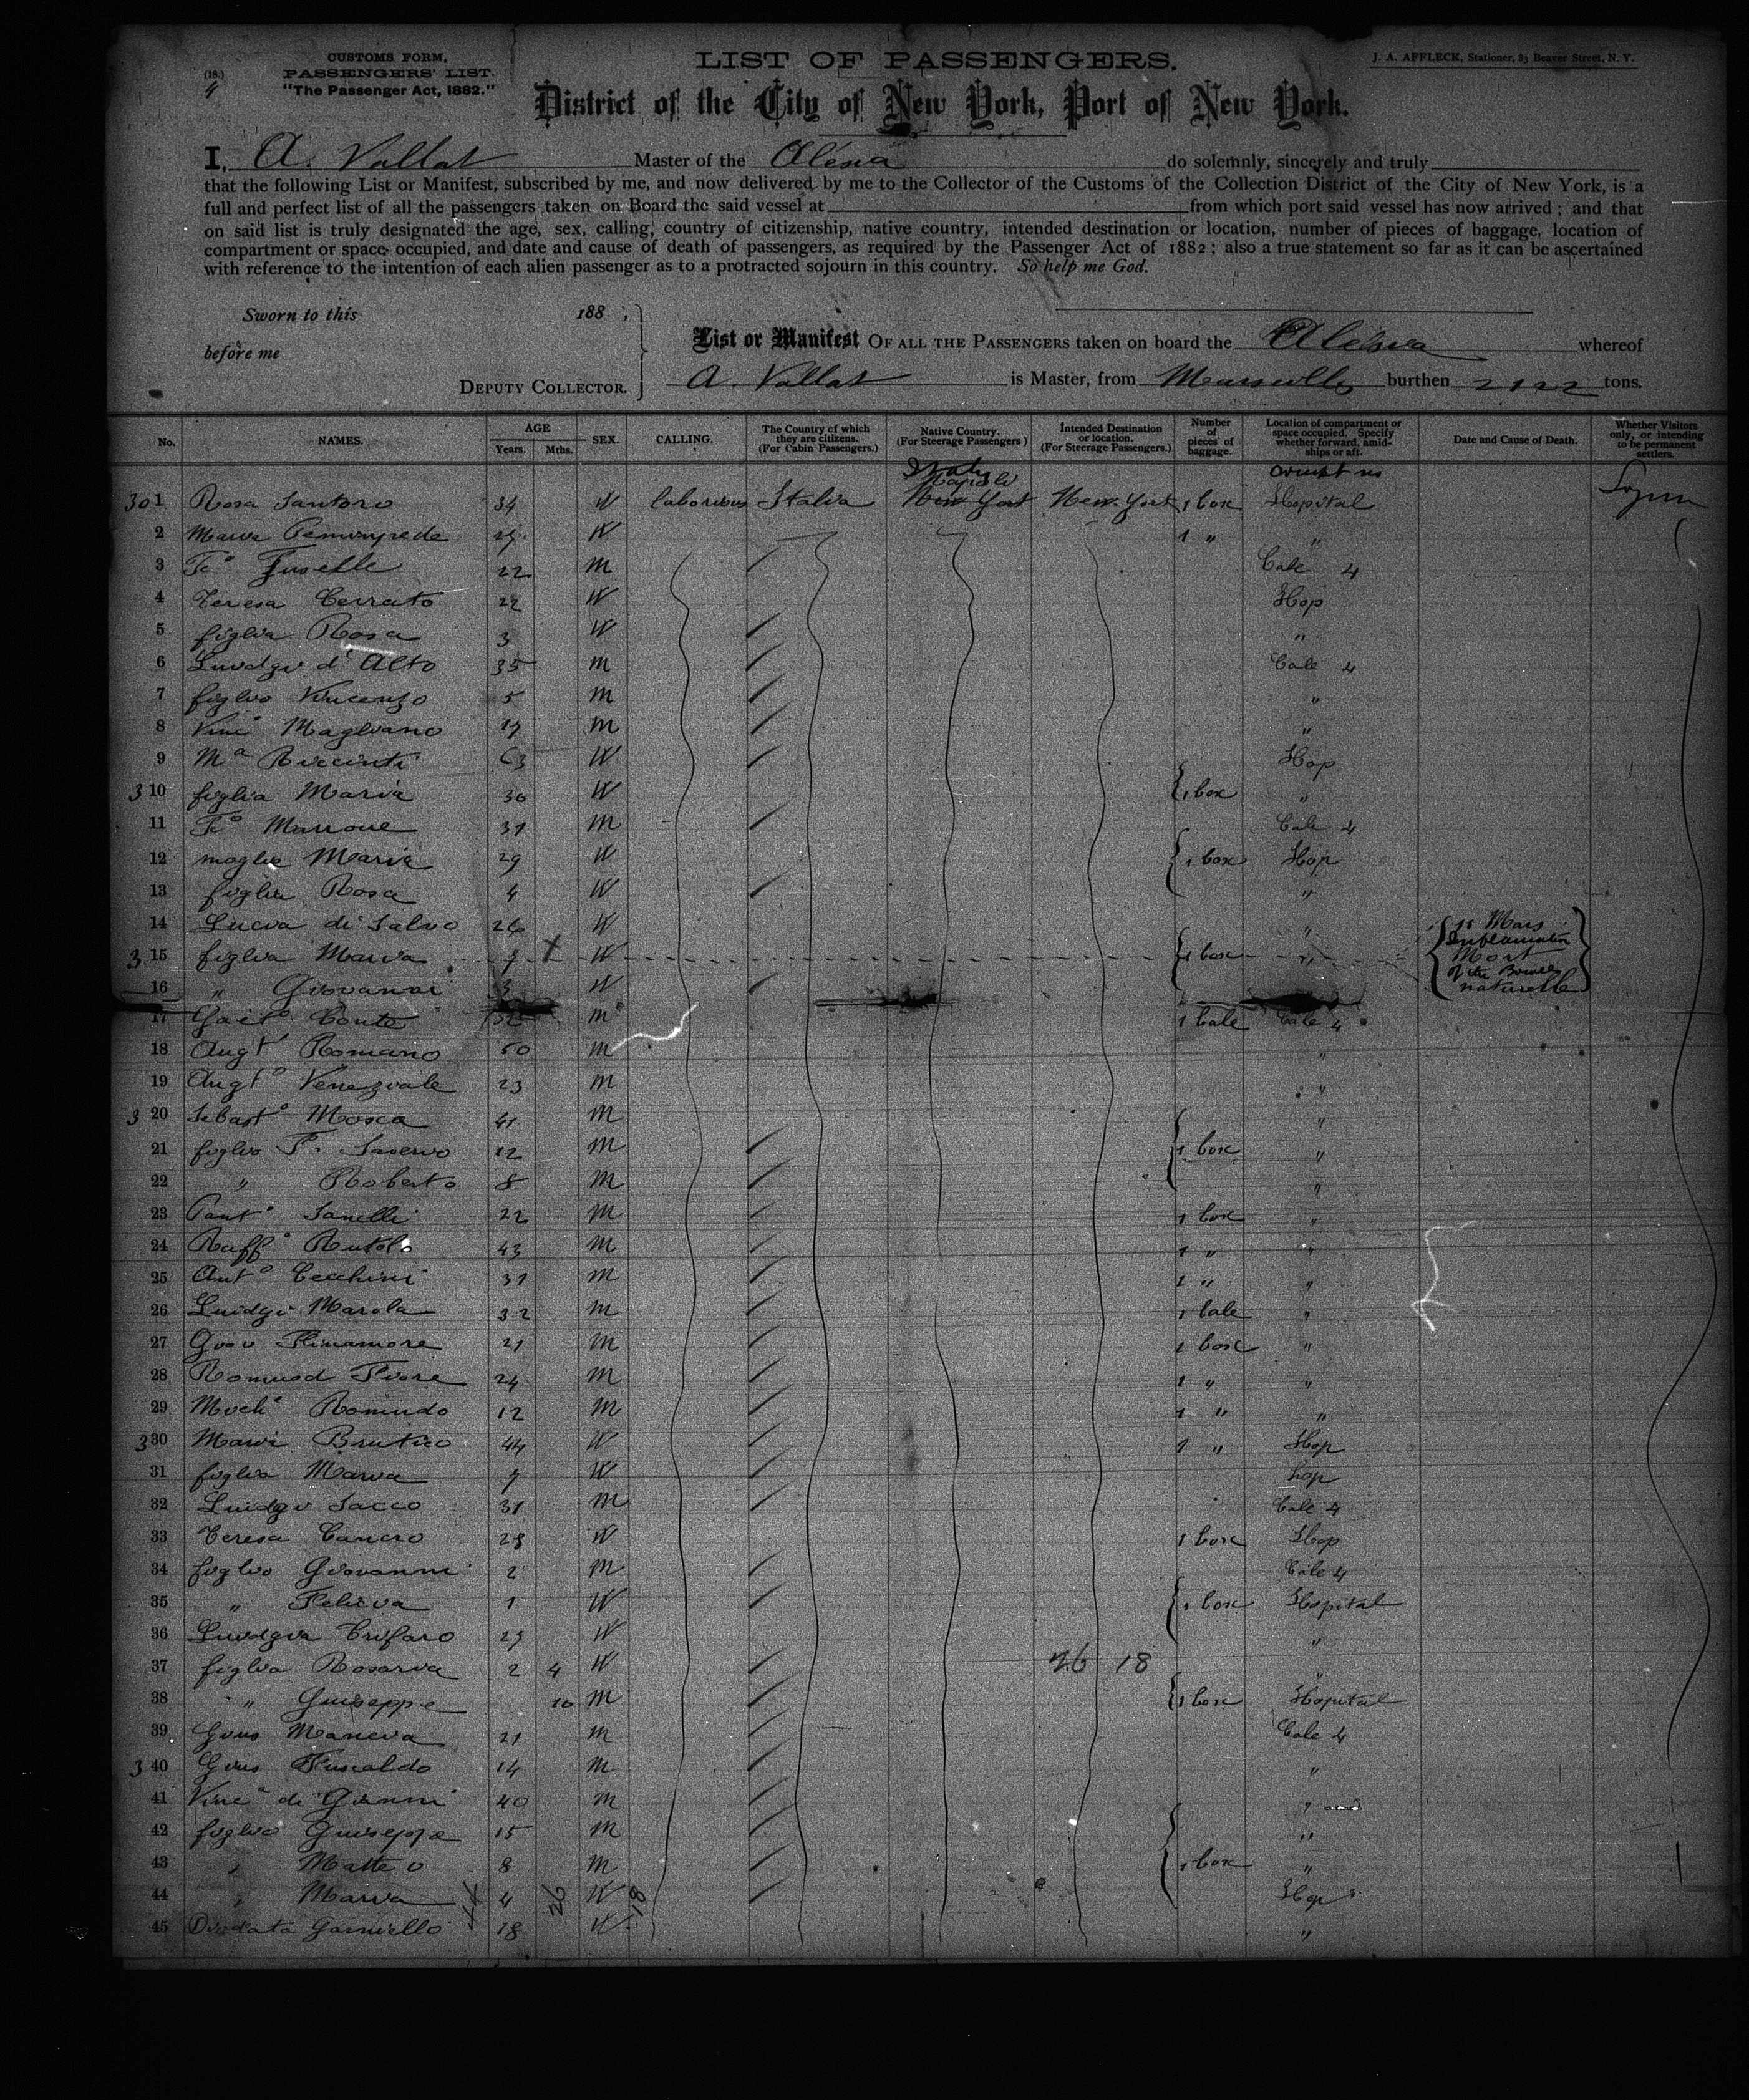 (18.)
4
CUSTOMS FORM.
PASSENGERS' LIST.
"The Passenger Act, 1882."
LIST OF PASSENGERS.
J. A. AFFLECK, Stationer, 83 Beaver Street, N. Y.
District of the City of New York, Port of New York.
I, A. Vallat Master of the Alesia do solemnly, sincerely and truly
that the following List or Manifest, subscribed by me, and now delivered by me to the Collector of the Customs of the Collection District of the City of New York, is a
full and perfect list of all the passengers taken on Board the said vessel at from which port said vessel has now arrived; and that
on said list is truly designated the age, sex, calling, country of citizenship, native country, intended destination or location, number of pieces of baggage, location of
compartment or space occupied, and date and cause of death of passengers, as required by the Passenger Act of 1882; also a true statement so far as it can be ascertained
with reference to the intention of each alien passenger as to a protracted sojourn in this country. So help me God.
Sworn to this 188 ,
before me
DEPUTY COLLECTOR.
List or Manifest OF ALL THE PASSENGERS taken on board the Alesia whereof
A. Vallat is Master, from Marseille burthen 2122 tons.
No. NAMES. AGE Years. Mths. SEX. CALLING. The Country of which they are citizens. (For Cabin Passengers.) Native Country. (For Steerage Passengers) Intended Destination or location. (For Steerage Passengers.) Number of pieces of baggage. Location of compartment or space occupied. Specify whether forward, amidships or aft. Date and Cause of Death. Whether Visitors only, or intending to be permanent settlers.
Italy
Napoli
301 Rosa Santoro 34 W Italia New York New York 1 box Hospital
2 Maria W 1 "  "
3 Fco Fuselle 22 m Cale 4
4 Teresa Cerrato 22 W Hop
5 figlia Rosa 3 W "
6 Luidgi d'Alto 35 m Cale 4
7 figlio Vincenzo 5 m "
8 Vinc Magliano 19 m "
9 Ma 63 W Hop
3 10 figlia Maria 30 W 1 box "
11 Fco Marrone 31 m Cale 4
12 moglie Maria 29 W 1 box Hop
13 figlia Rosa 4 W "
14 Lucia di Salvo 26 W "
3 15 figlia Maria W 1 box " 11 Mars Inflamation Mort of the Bowels naturelle
16 " Giovanni 3 W
17 Gaeto Conte m 1 bale Cale 4
18 Augt Romano 50 m "
19 Augto Veneziale 23 m "
3 20 Sebasto Mosca 41 m "
21 figlio F. Saverio 12 m 1 box "
22 " Roberto 8 m "
23 Panto Sanelli 22 m 1 box "
24 Raffo Rutolo 43 m 1 " "
25 Anto Cecchini 31 m 1 " "
26 Luidgi Marola 32 m 1 bale "
27 Giov Flinamore 21 m 1 box "
28 Fiore 24 m 1 " "
29 Mich 12 m 1 " "
3 30 Maria 44 W 1 " Hop
31 figlia Maria W hop
32 Luidgi Sacco 31 m Cale 4
33 Teresa Cancro W 1 box Hop
34 figlio Giovanni 2 m Cale 4
35 " Felicia 1 W 1 box Hospital
36 Luidgia Trifaro W "
37 figlia Rosaria 2 4 W 26 18 "
38 " Giuseppe 10 m 1 box Hospital
39 Gius Maneva 21 m Cale 4
3 40 Gius Fuscaldo 14 m "
41 Vinc di Gianni 40 m "
42 figlio Giuseppe 15 m "
43 " Matteo 8 m 1 box "
44 " Maria 4 W Hop
26 18
45 18 W "